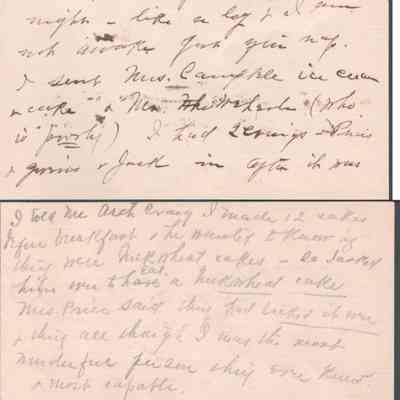 night - like a log & I am
not awake for your nap.
I sent Mrs. Campble ice cream
& cake " & Mrs. Wheeler (who
is poorly) I had & Price
& & Jack in after it was
I told Mr Arch Craig I made 12 cakes
before breakfast & he wanted to know if
they were Buckwheat cakes - so I asked
him over to eat a Buckwheat cake
Mrs. Price said they had talked it over
& they all thought I was the most
wonderful person they ever knew
& most capable.